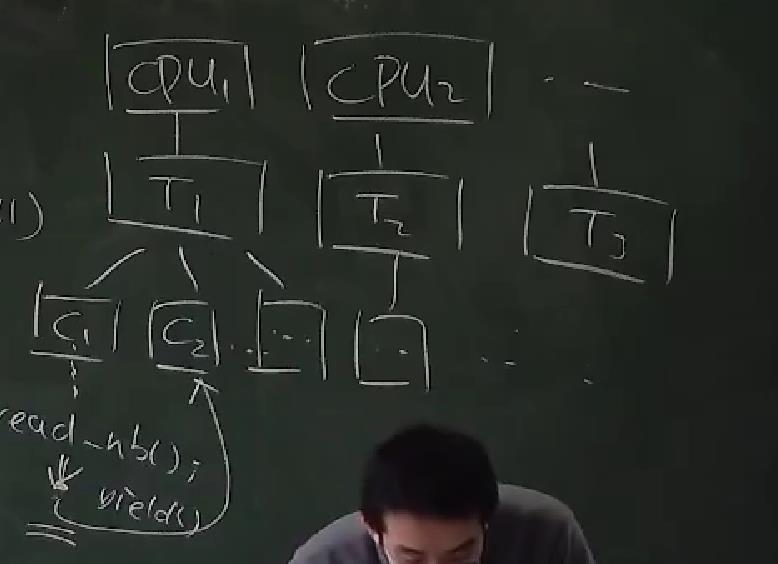 CPU1 CPU2 ...
T1 T2 T3
1)
C1 C2 ... ... ... ...
read_nb();
yield()